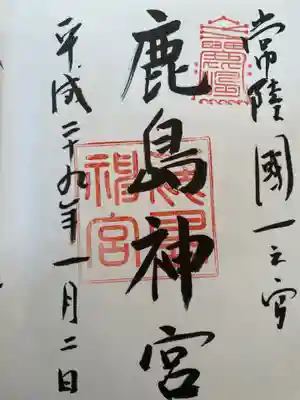 常陸國一之宮
鹿島神宮
鹿島神宮
平成二十九年一月二日